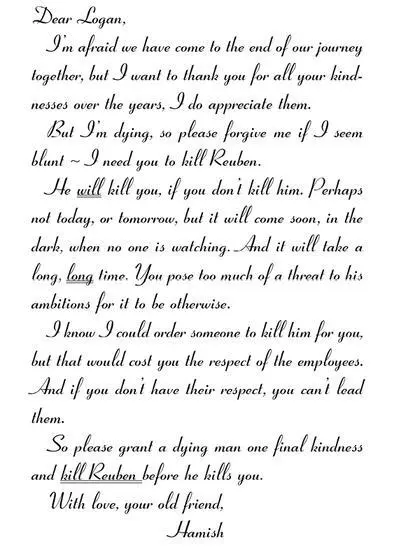 Dear Logan,
I'm afraid we have come to the end of our journey
together, but I want to thank you for all your kind-
nesses over the years, I do appreciate them.
But I'm dying, so please forgive me if I seem
blunt ~ I need you to kill Reuben.
He will kill you, if you don't kill him. Perhaps
not today, or tomorrow, but it will come soon, in the
dark, when no one is watching. And it will take a
long, long time. You pose too much of a threat to his
ambitions for it to be otherwise.
I know I could order someone to kill him for you,
but that would cost you the respect of the employees.
And if you don't have their respect, you can't lead
them.
So please grant a dying man one final kindness
and kill Reuben before he kills you.
With love, your old friend,
Hamish